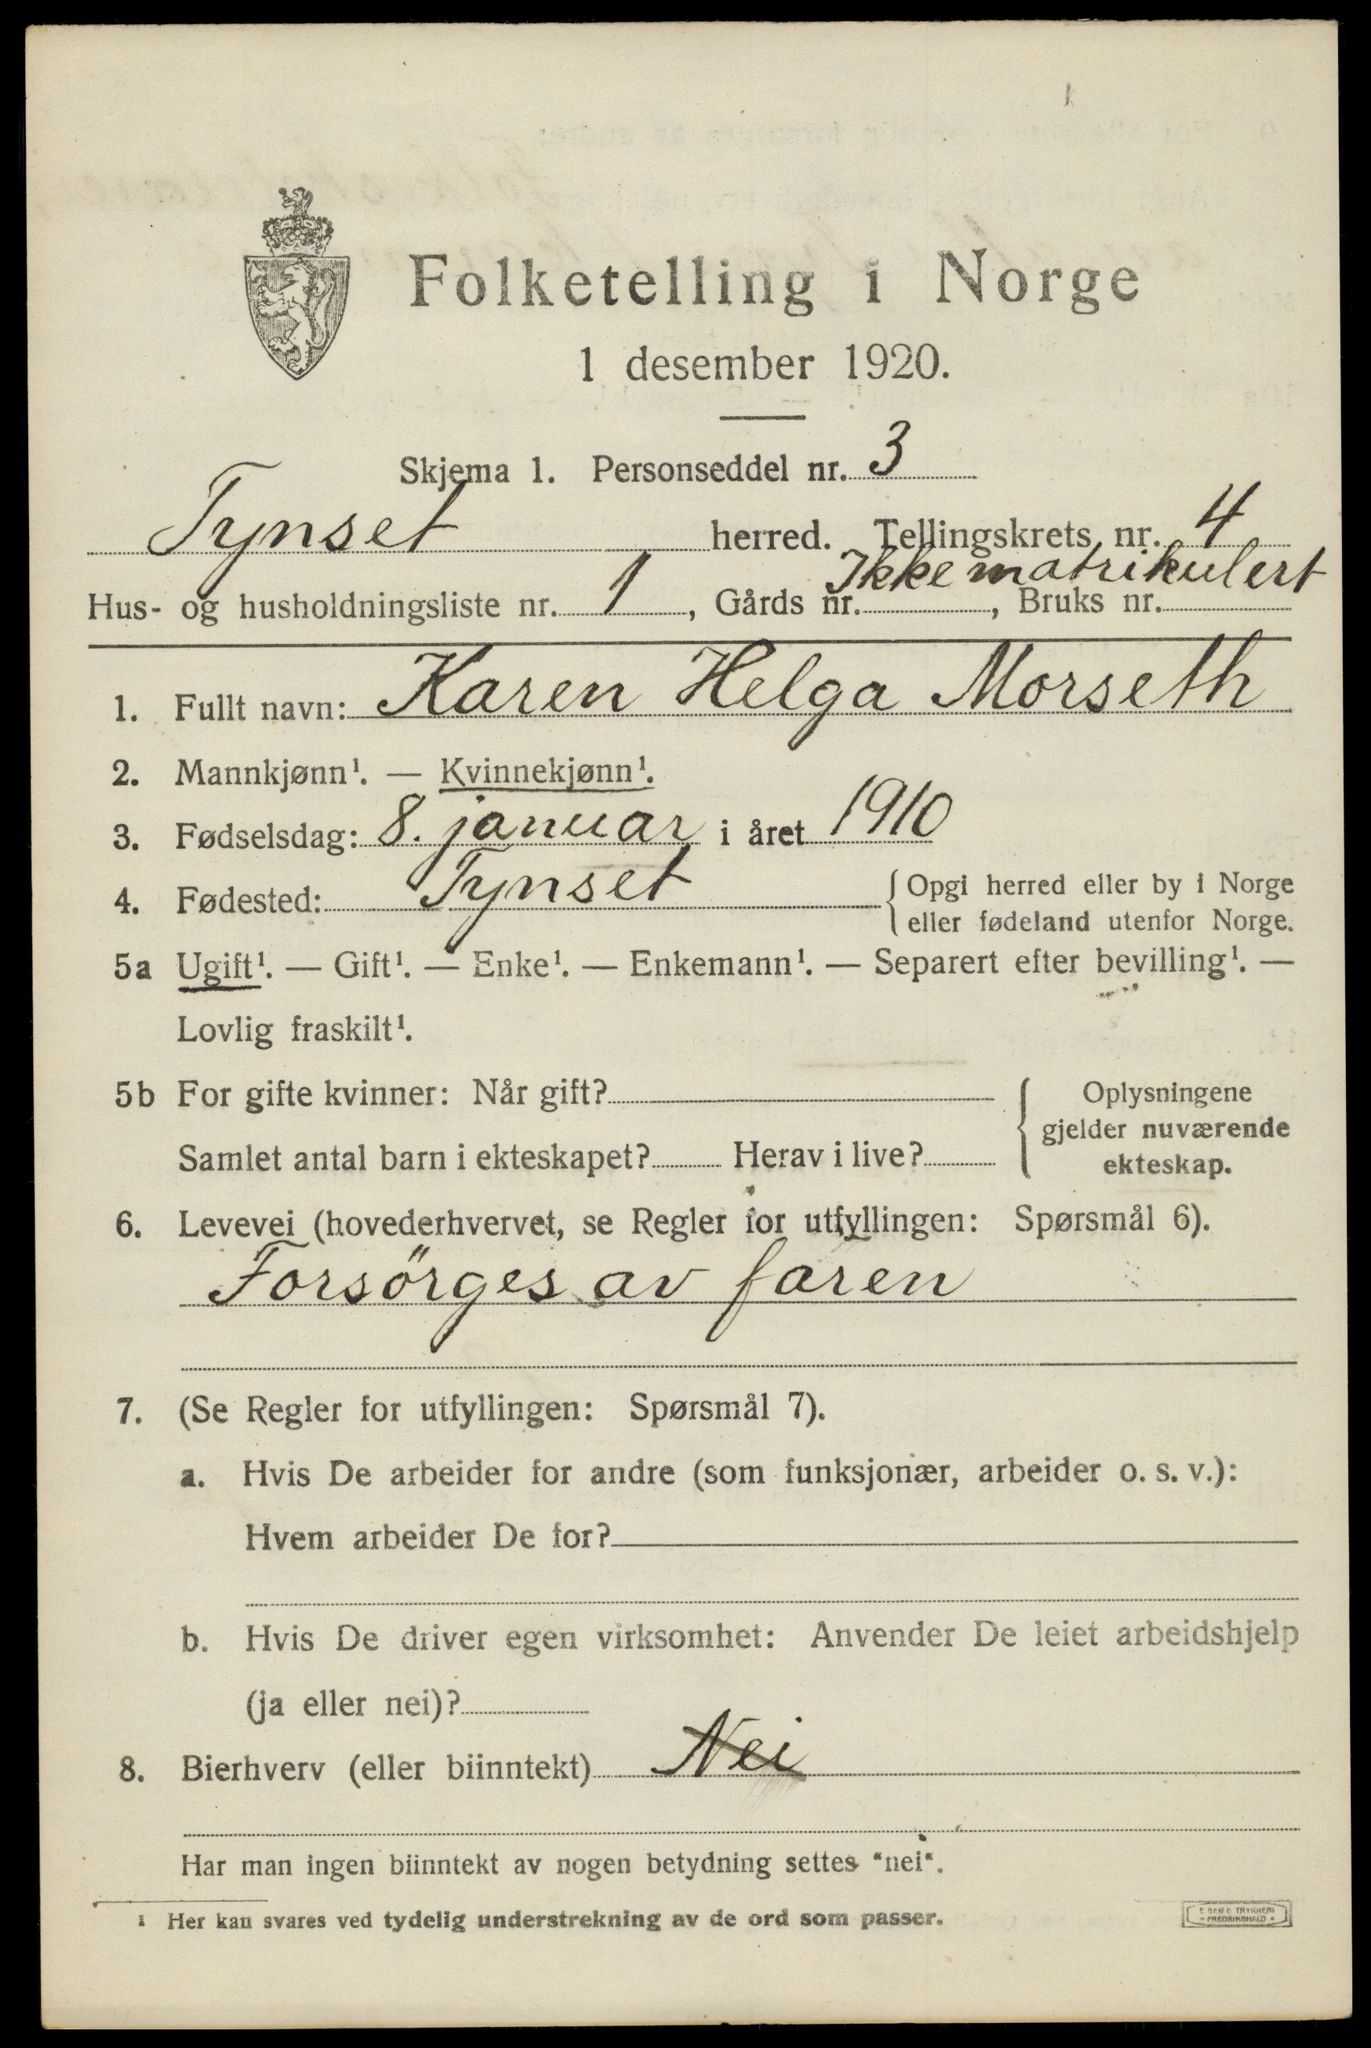 Folketelling i Norge
1 desember 1920.
Skjema 1. Personseddel nr. 3
Tynset herred. Tellingskrets nr. 4
Hus- og husholdningsliste nr. 1, Gårds nr. Ikke matrikulert, Bruks nr.
1. Fullt navn: Karen Helga Morseth
2. Mannkjønn¹. — Kvinnekjønn¹.
3. Fødselsdag: 8. januar i året 1910
4. Fødested: Tynset { Opgi herred eller by i Norge
eller fødeland utenfor Norge.
5a Ugift¹. — Gift¹. — Enke¹. — Enkemann¹. — Separert efter bevilling¹. —
Lovlig fraskilt¹.
5b For gifte kvinner: Når gift?
Samlet antal barn i ekteskapet? Herav i live?
{ Oplysningene
gjelder nuværende
ekteskap.
6. Levevei (hovederhvervet, se Regler for utfyllingen: Spørsmål 6).
Forsörges av faren
7. (Se Regler for utfyllingen: Spørsmål 7).
a. Hvis De arbeider for andre (som funksjonær, arbeider o. s. v.):
Hvem arbeider De for?
b. Hvis De driver egen virksomhet: Anvender De leiet arbeidshjelp
(ja eller nei)?
8. Bierhverv (eller biinntekt) Nei
Har man ingen biinntekt av nogen betydning settes "nei".
¹ Her kan svares ved tydelig understrekning av de ord som passer.
TRYKKERI
FREDRIKSHALD